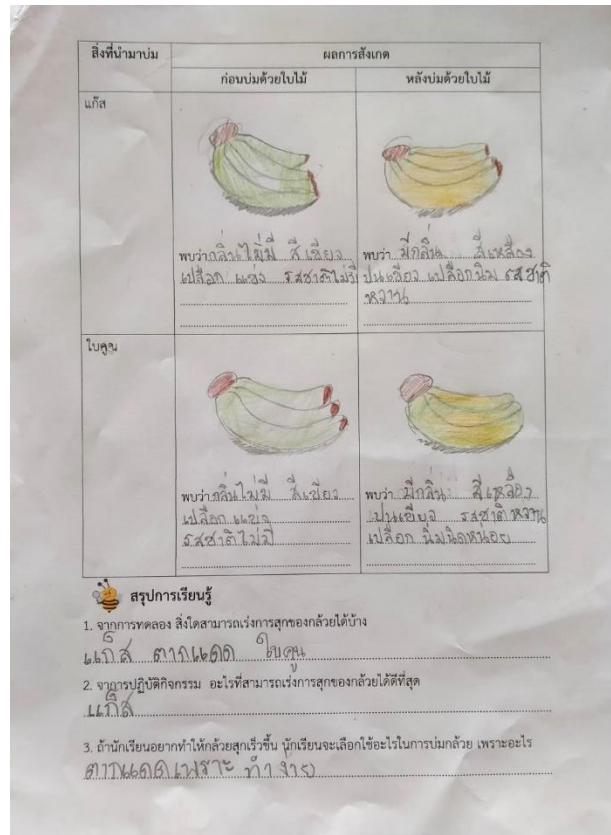 สิ่งที่นำมาบ่ม
ผลการสังเกต
ก่อนบ่มด้วยใบไม้
หลังบ่มด้วยใบไม้
แก๊ส
พบว่า กลิ่นไม่มี สีเขียว
เปลือก แข่ง รสชาติไม่มี
พบว่า มีกลิ่น สีเหลือง
ปนเขียว เปลือกนิ่ม รสชาติ
หวาน
ใบคูน
พบว่า กลิ่นไม่มี สีเขียว
เปลือก แข่ง
รสชาติไม่มี
พบว่า มีกลิ่น สีเหลือง
ปนเขียว รสชาติหวาน
เปลือก นิ่มนิดหน่อย
สรุปการเรียนรู้
1. จากการทดลอง สิ่งใดสามารถเร่งการสุกของกล้วยได้บ้าง
แก๊ส ตากแดด ใบคูน
2. จาการปฏิบัติกิจกรรม อะไรที่สามารถเร่งการสุกของกล้วยได้ดีที่สุด
แก๊ส
3. ถ้านักเรียนอยากทำให้กล้วยสุกเร็วขึ้น นักเรียนจะเลือกใช้อะไรในการบ่มกล้วย เพราะอะไร
ตากแดดเพราะ ทำง่าย